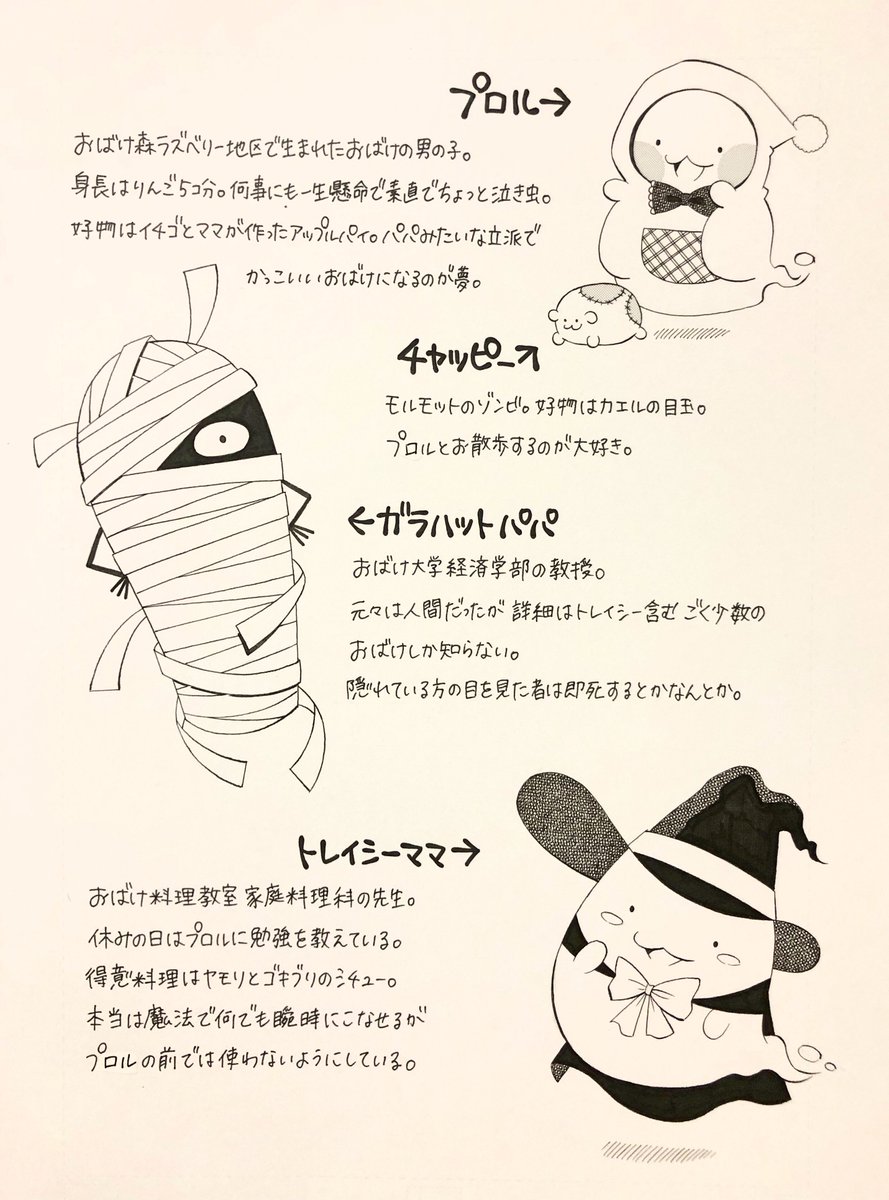 プロル→
おばけ森ラズベリー地区で生まれたおばけの男の子。
身長はりんご5コ分。何事にも一生懸命で素直でちょっと泣き虫。
好物はイチゴとママが作ったアップルパイ。パパみたいな立派で
かっこいいおばけになるのが夢。
チャッピー↗
モルモットのゾンビ。好物はカエルの目玉。
プロルとお散歩するのが大好き。
←ガラハットパパ
おばけ大学経済学部の教授。
元々は人間だったが 詳細はトレイシー含む ごく少数の
おばけしか知らない。
隠れている方の目を見た者は即死するとかなんとか。
トレイシーママ→
おばけ料理教室 家庭料理科の先生。
休みの日はプロルに勉強を教えている。
得意料理はヤモリとゴキブリのシチュー。
本当は魔法で何でも瞬時にこなせるが
プロルの前では使わないようにしている。